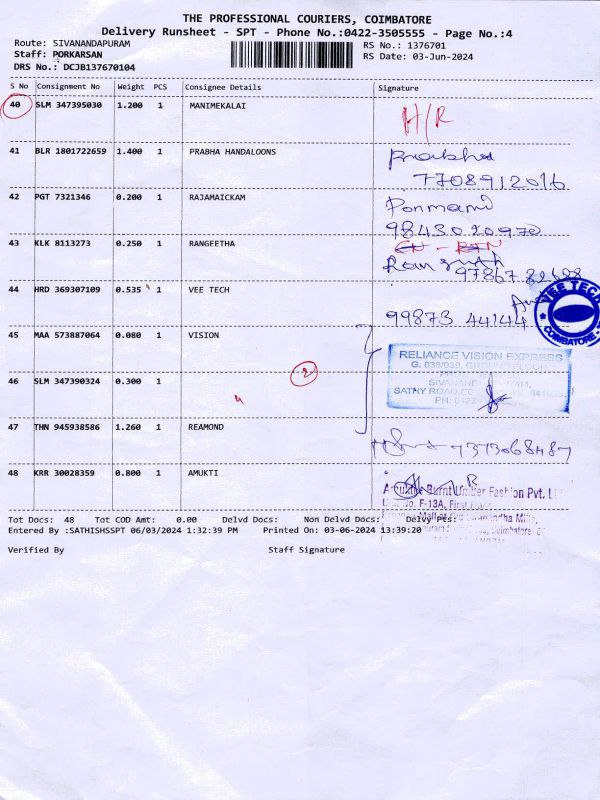 THE PROFESSIONAL COURIERS, COIMBATORE
Delivery Runsheet - SPT - Phone No.:0422-3505555 - Page No.:4
Route: SIVANANDAPURAM RS No.: 1376701
Staff: PORKARSAN RS Date: 03-Jun-2024
DRS No.: DCJB137670104
S No Consignment No Weight PCS Consignee Details Signature
40 SLM 347395030 1.200 1 MANIMEKALAI
H/R
41 BLR 1801722659 1.400 1 PRABHA HANDALOONS Prabha
7708912016
42 PGT 7321346 0.200 1 RAJAMAICKAM Ponmani
98430 20970
43 KLK 8113273 0.250 1 RANGEETHA
44 HRD 369307109 0.535 1 VEE TECH
99873 44144
VEE TECH
COIMBATORE
45 MAA 573887064 0.080 1 VISION
RELIANCE VISION EXPRESS
G. 038/039, GROUND FLOOR
46 SLM 347390324 0.300 1
2
SATHY ROAD,
47 THN 945938586 1.260 1 REAMOND
7373068487
48 KRR 30028359 0.800 1 AMUKTI
Burnt Umber Fashion Pvt.
No. F-13A, First
Tot Docs: 48 Tot COD Amt: 0.00 Delvd Docs: Non Delvd Docs: Delvy Pcs:
Entered By :SATHISHSSPT 06/03/2024 1:32:39 PM Printed On: 03-06-2024 13:39:20
Verified By Staff Signature